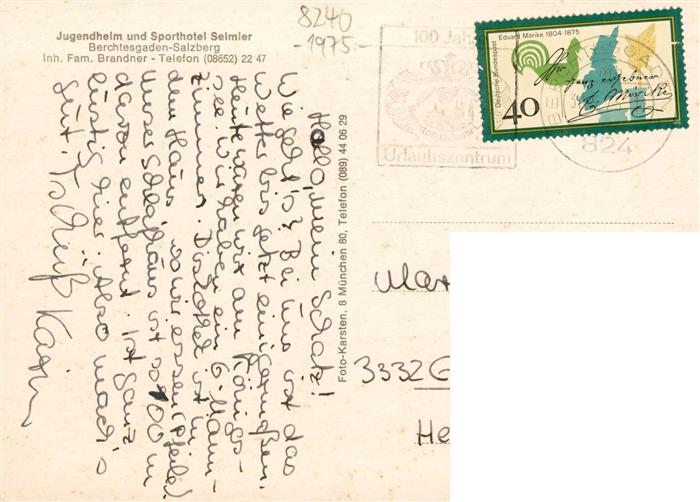 Jugendheim und Sporthotel Seimler
Berchtesgaden-Salzberg
Inh. Fam. Brandner - Telefon (08652) 22 47
8240
-1975-
100 Jah
Urlaubszentrum
824
Deutsche Bundespost
Eduard Mörike 1804-1875
40
Ihr ganz ergebner
E. Mörike
Hallo, mein Schatz!
Wie geht's? Bei uns ist das
Wetter bis jetzt einigermaßen.
Heute waren wir am Königs-
see. Wir haben ein 6-Mann-
zimmer. Das Hotel ist in
dem Haus wo wir essen (Pfeile)
unser Schlafhaus ist 300 m
davon entfernt. Ist ganz
lustig hier. Also mach's
gut. Tschüß
Foto-Karsten, 8 München 80, Telefon (089) 44 06 29
3332 G
He